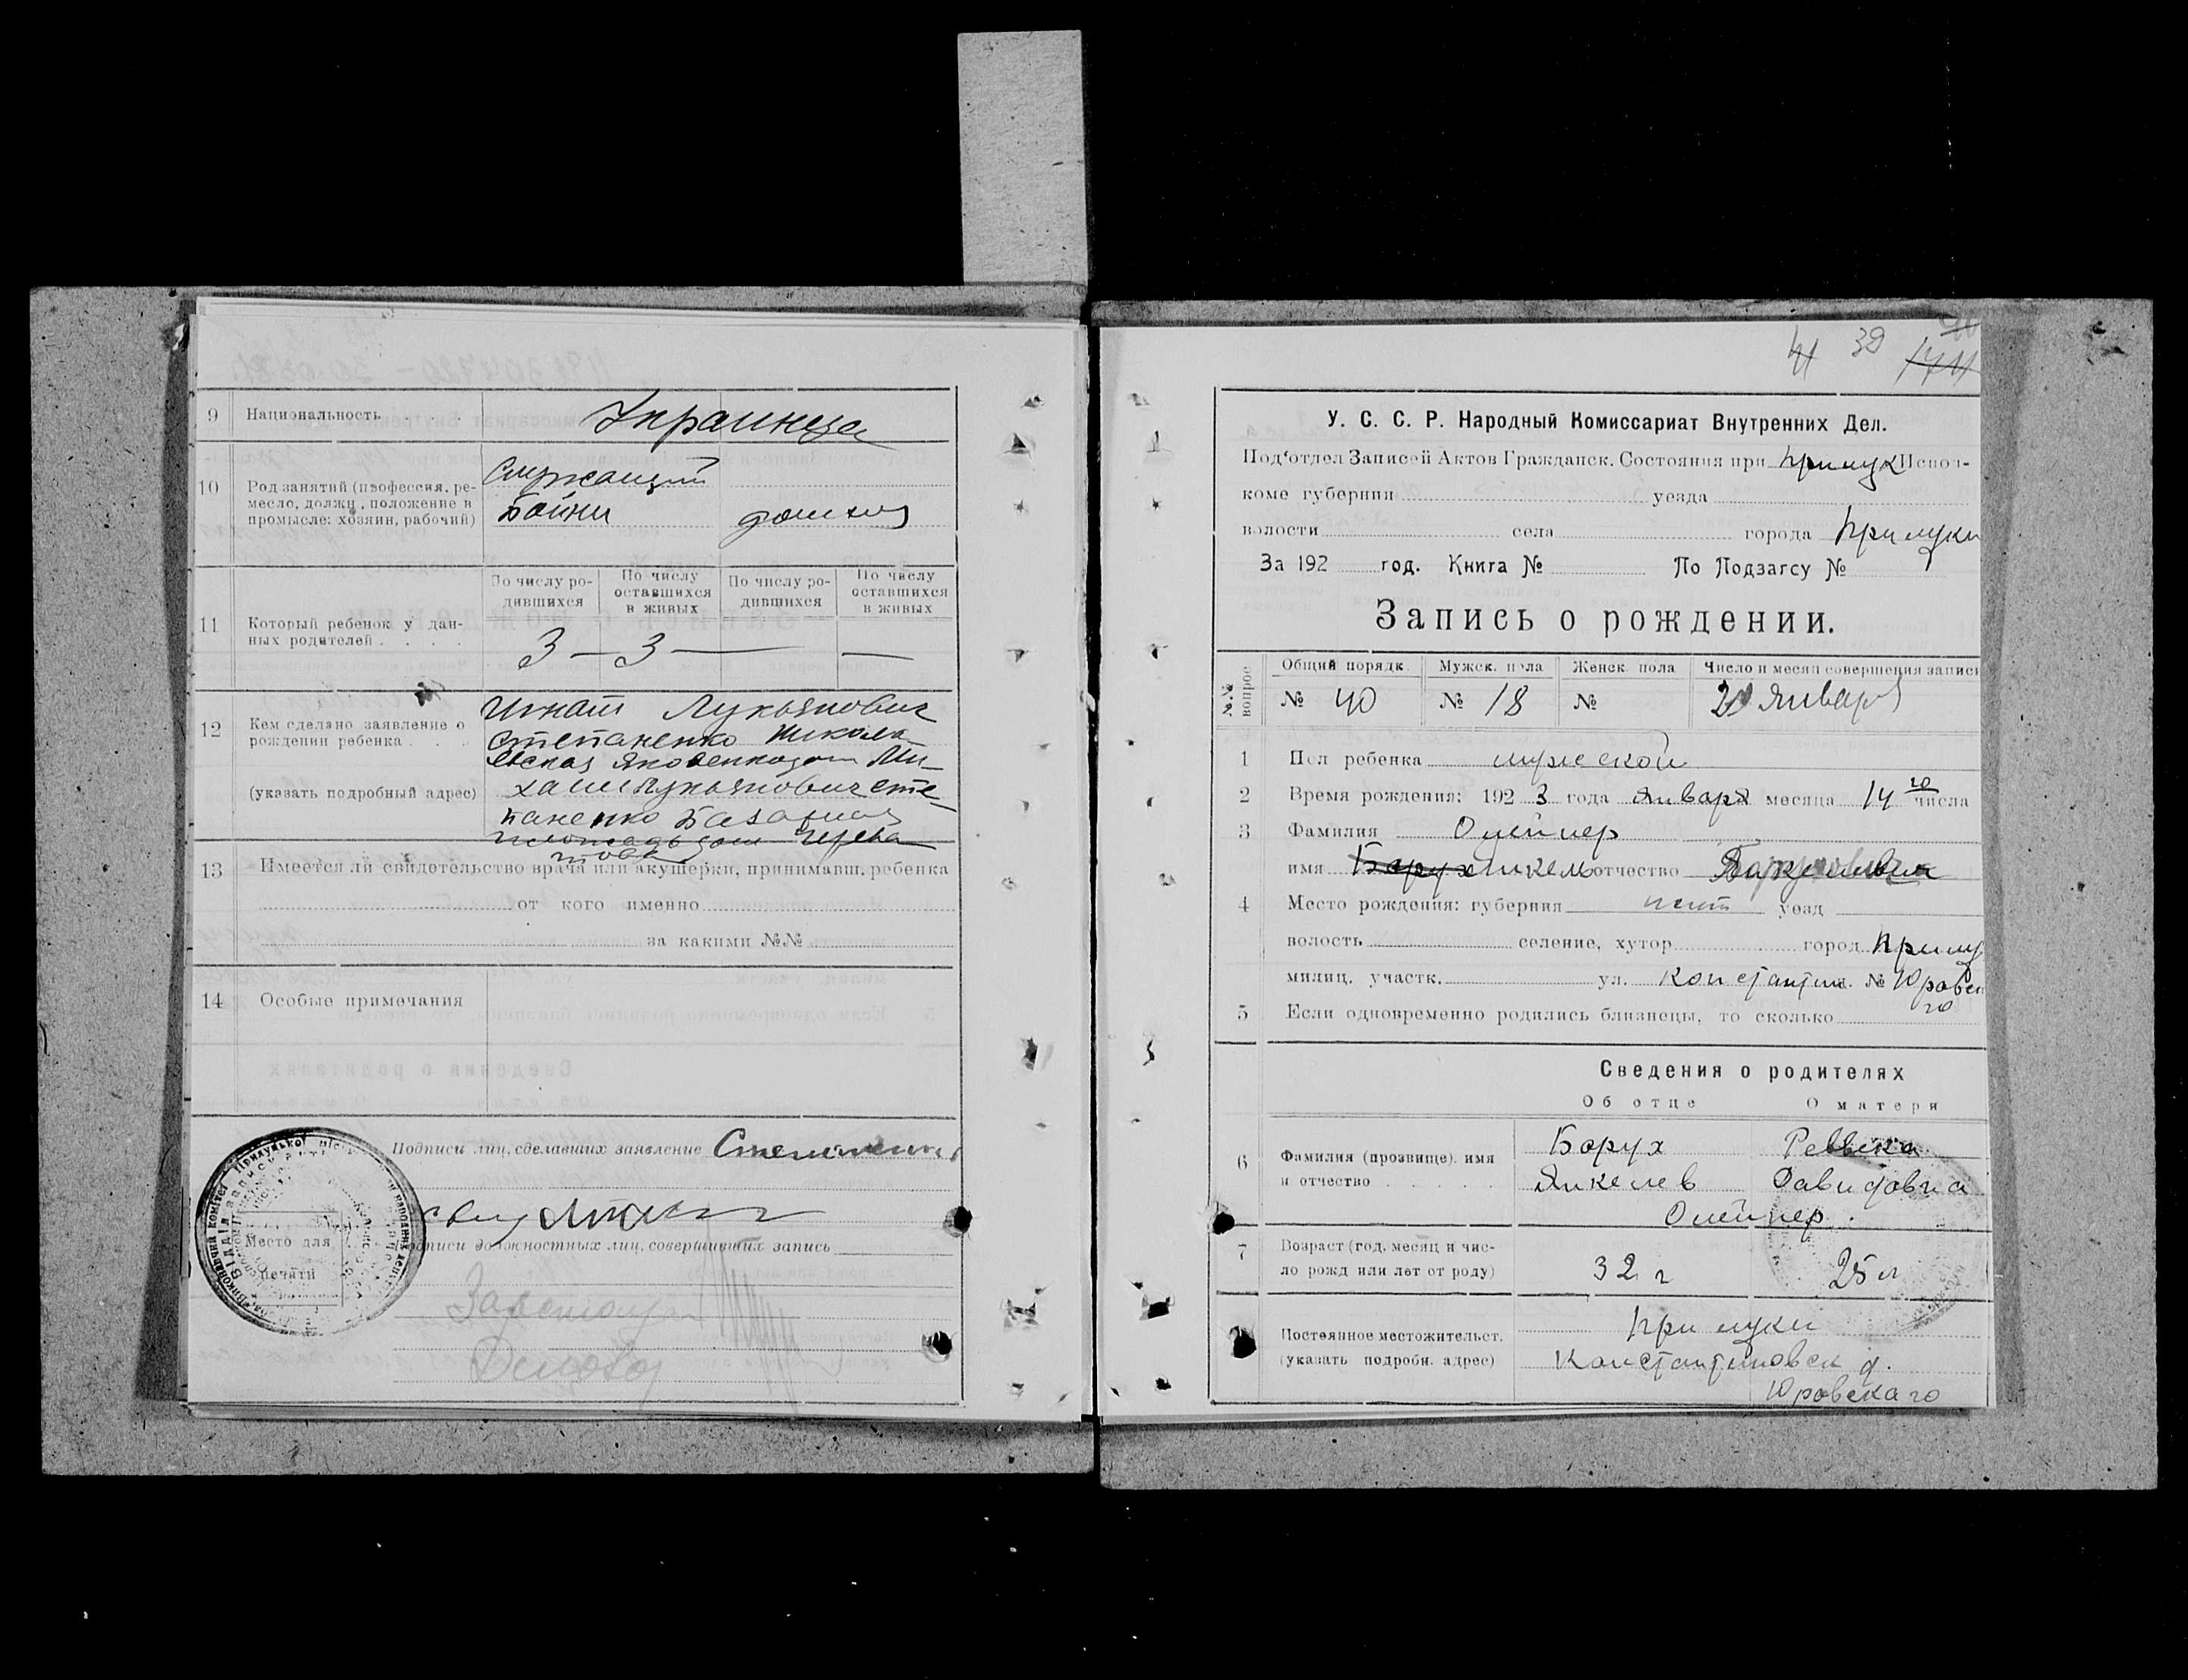 9 Национальность Украинца
10 Род занятий (профессия, ре-
месло, должн., положение в
промысле: хозяин, рабочий)
Служащий
Бойни домхоз
11 Который ребенок у дан-
ных родителей
По числу ро-
дившихся
По числу
оставшихся
в живых
По числу ро-
дившихся
По числу
оставшихся
в живых
3 — 3 — —
12 Кем сделано заявление о
рождении ребенка
(указать подробный адрес)
Игнат Лукьянович
Степаненко Никола-
евская Яковенко дом Ми-
хаил Лукьянович Сте-
паненко Базарная
площадь дом
13 Имеется ли свидетельство врача или акушерки, принимавш. ребенка
от кого именно
за какими №№
14 Особые примечания
Подписи лиц, сделавших заявление Степаненко
Подписи должностных лиц, совершивших запись
Место для
печати
Заветующ
Деловод
39
У. С. С. Р. Народный Комиссариат Внутренних Дел.
Под'отдел Записей Актов Гражданск. Состояния при Прилук Испол-
коме губернии уезда
волости села города Прилуки
За 192 год. Книга № По Подзагсу №
Запись о рождении.
№№ вопрос
Общий порядк. Мужск. пола Женск. пола Число и месяц совершения записи
№ 40 № 18 № Января
1 Пол ребенка мужской
2 Время рождения: 192 3 года Января месяца 14 го числа
3 Фамилия Олейнер
имя Барух Янкель отчество
4 Место рождения: губерния уезд
волость селение, хутор город Прилу
милиц. участк. ул. Константин. № Юровск
го
5 Если одновременно родились близнецы, то сколько
Сведения о родителях
Об отце О матери
6 Фамилия (прозвище) имя
и отчество
Борух Реввека
Янкелев Давидовна
Олейнер.
7 Возраст (год, месяц и чис-
ло рожд или лет от роду)
32 г 25 л
Постоянное местожительст.
(указать подробн. адрес)
Прилуки
Константиновск д.
Юровскаго